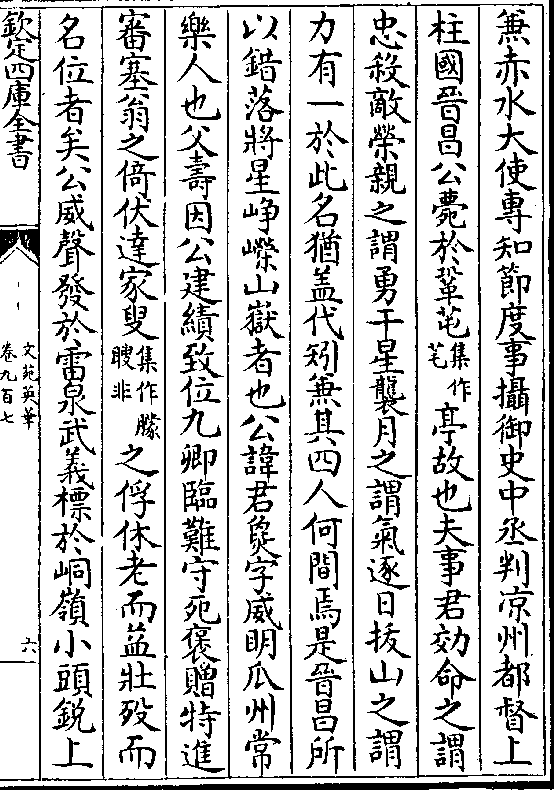 兼赤水大使專知節度事攝御史中丞判凉州都督上
柱國晉昌公薨於鞏芘集作芼亭故也夫事君効命之謂
忠殺敵榮親之謂勇干星襲月之謂氣逐日拔山之謂
力有一於此名猶盖代矧兼其四人何間焉是晉昌所
以錯落將星崢嶸山嶽者也公諱君㚟字威明瓜州常
樂人也父壽因公建績致位九卿臨難守死褒贈特進
審塞翁之倚伏達家叟集作朦瞍非之俘休老而益壯歿而
名位者矣公威聲發於雷泉武義標於峒嶺小頭銳上
欽定四庫全書
文苑英華
卷九百七
六